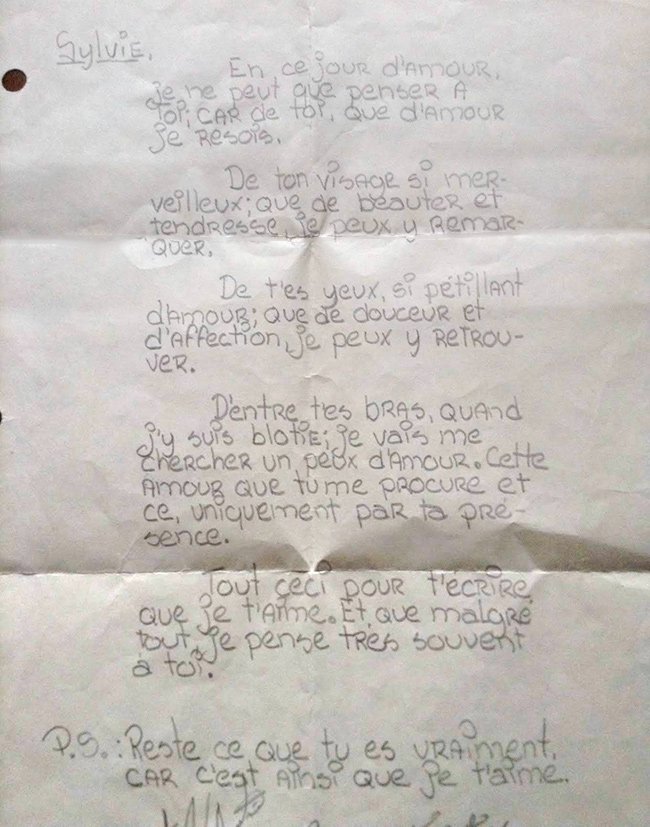 Sylvie,
En ce jour d'amour,
je ne peut que penser à
toi; car de toi, que d'amour
je resois.
De ton visage si mer-
veilleux; que de beauter et
tendresse, je peux y remar-
quer.
De t'es yeux, si pétillant
d'amour; que de douceur et
d'affection, je peux y retrou-
ver.
D'entre t'es bras, quand
j'y suis blotie; je vais me
chercher un peux d'amour. Cette
amour que tu me procure et
ce, uniquement par ta pré-
sence.
Tout ceci pour t'écrire
que je t'aime. Et que malgré
tout, je pense très souvent
à toi.
P.S.: Reste ce que tu es vraiment,
car c'est ainsi que je t'aime.